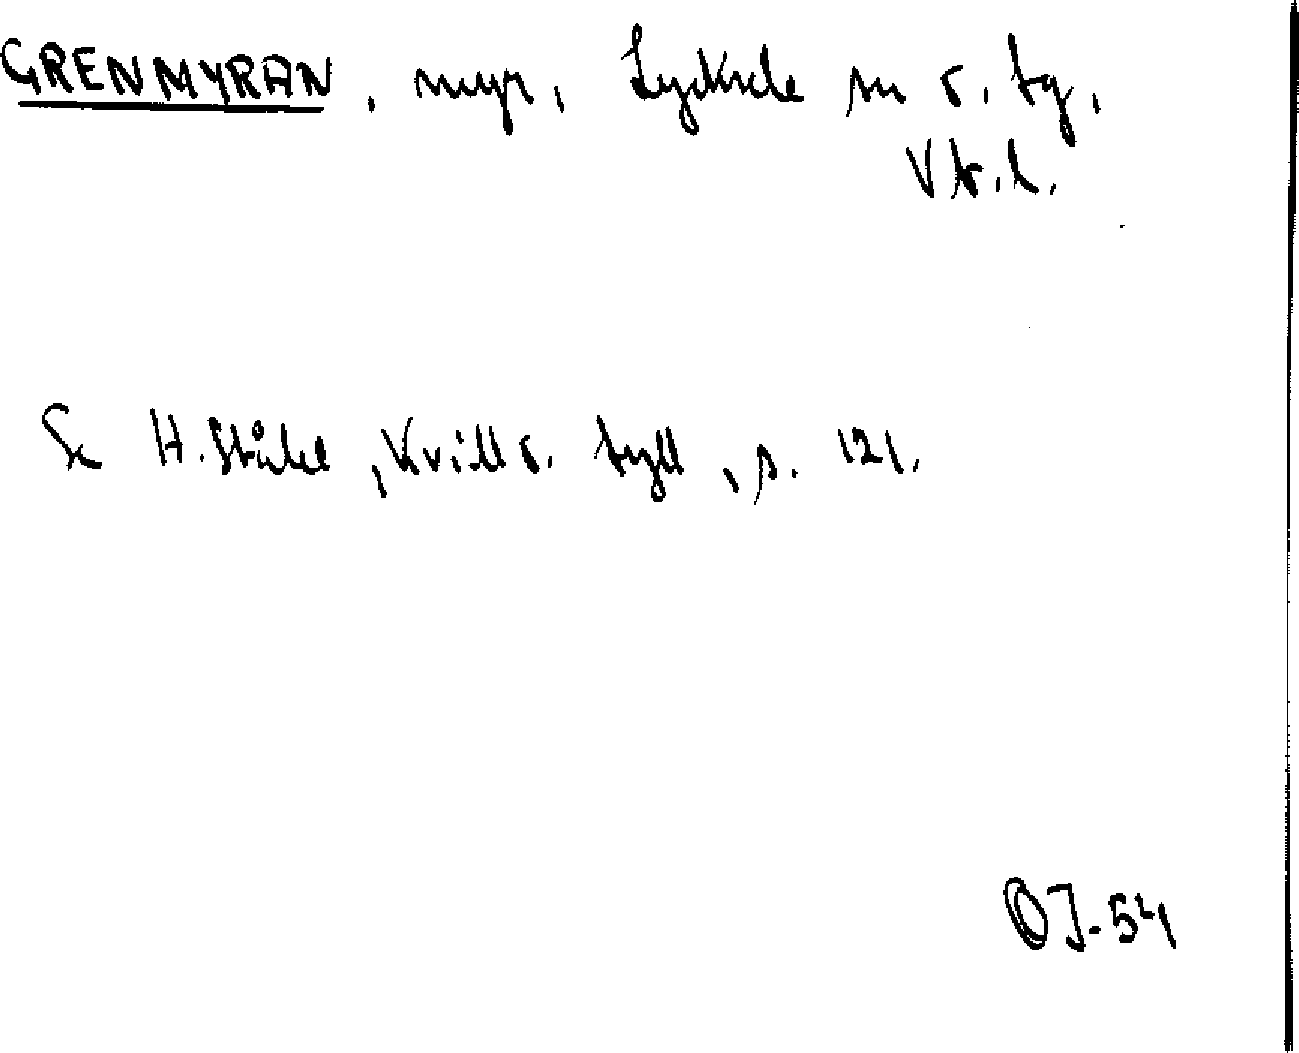 GRENMYRAN, myr, Lycksele sn o. tg,
Vb. l.
Se H. Ståhl, Kvill o. tyll, s. 121.
OJ-54